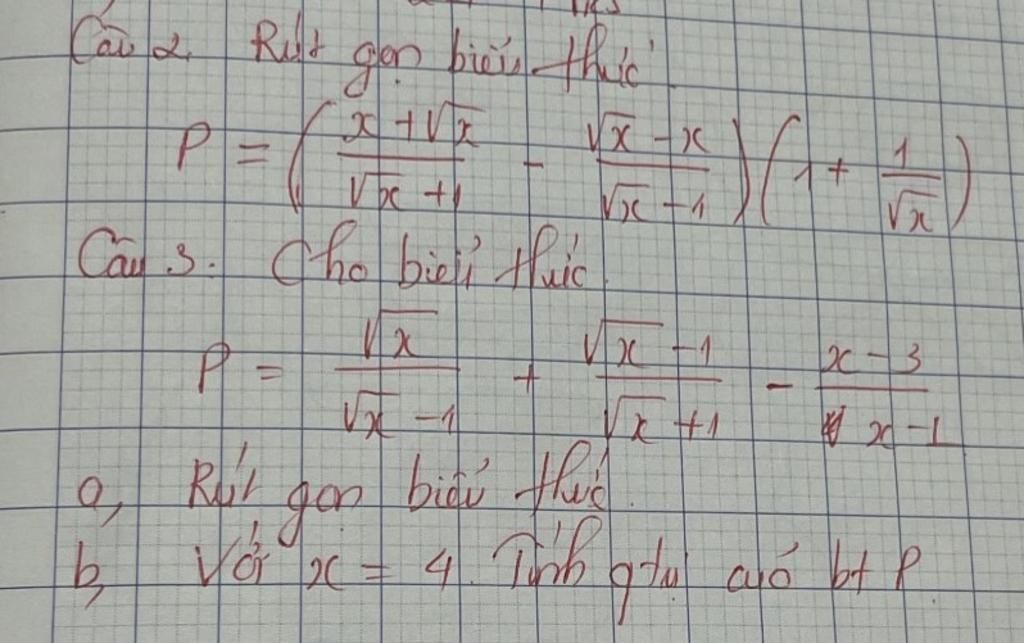 Câu 2. Rút gọn biểu thức
P = ( (x + √x)/(√x + 1) - (√x - x)/(√x - 1) ) ( 1 + 1/√x )
Câu 3. Cho biểu thức.
P = √x/(√x - 1) + (√x - 1)/(√x + 1) - (x - 3)/(x - 1)
a, Rút gọn biểu thức.
b, Với x = 4. Tính gtrị của bt P